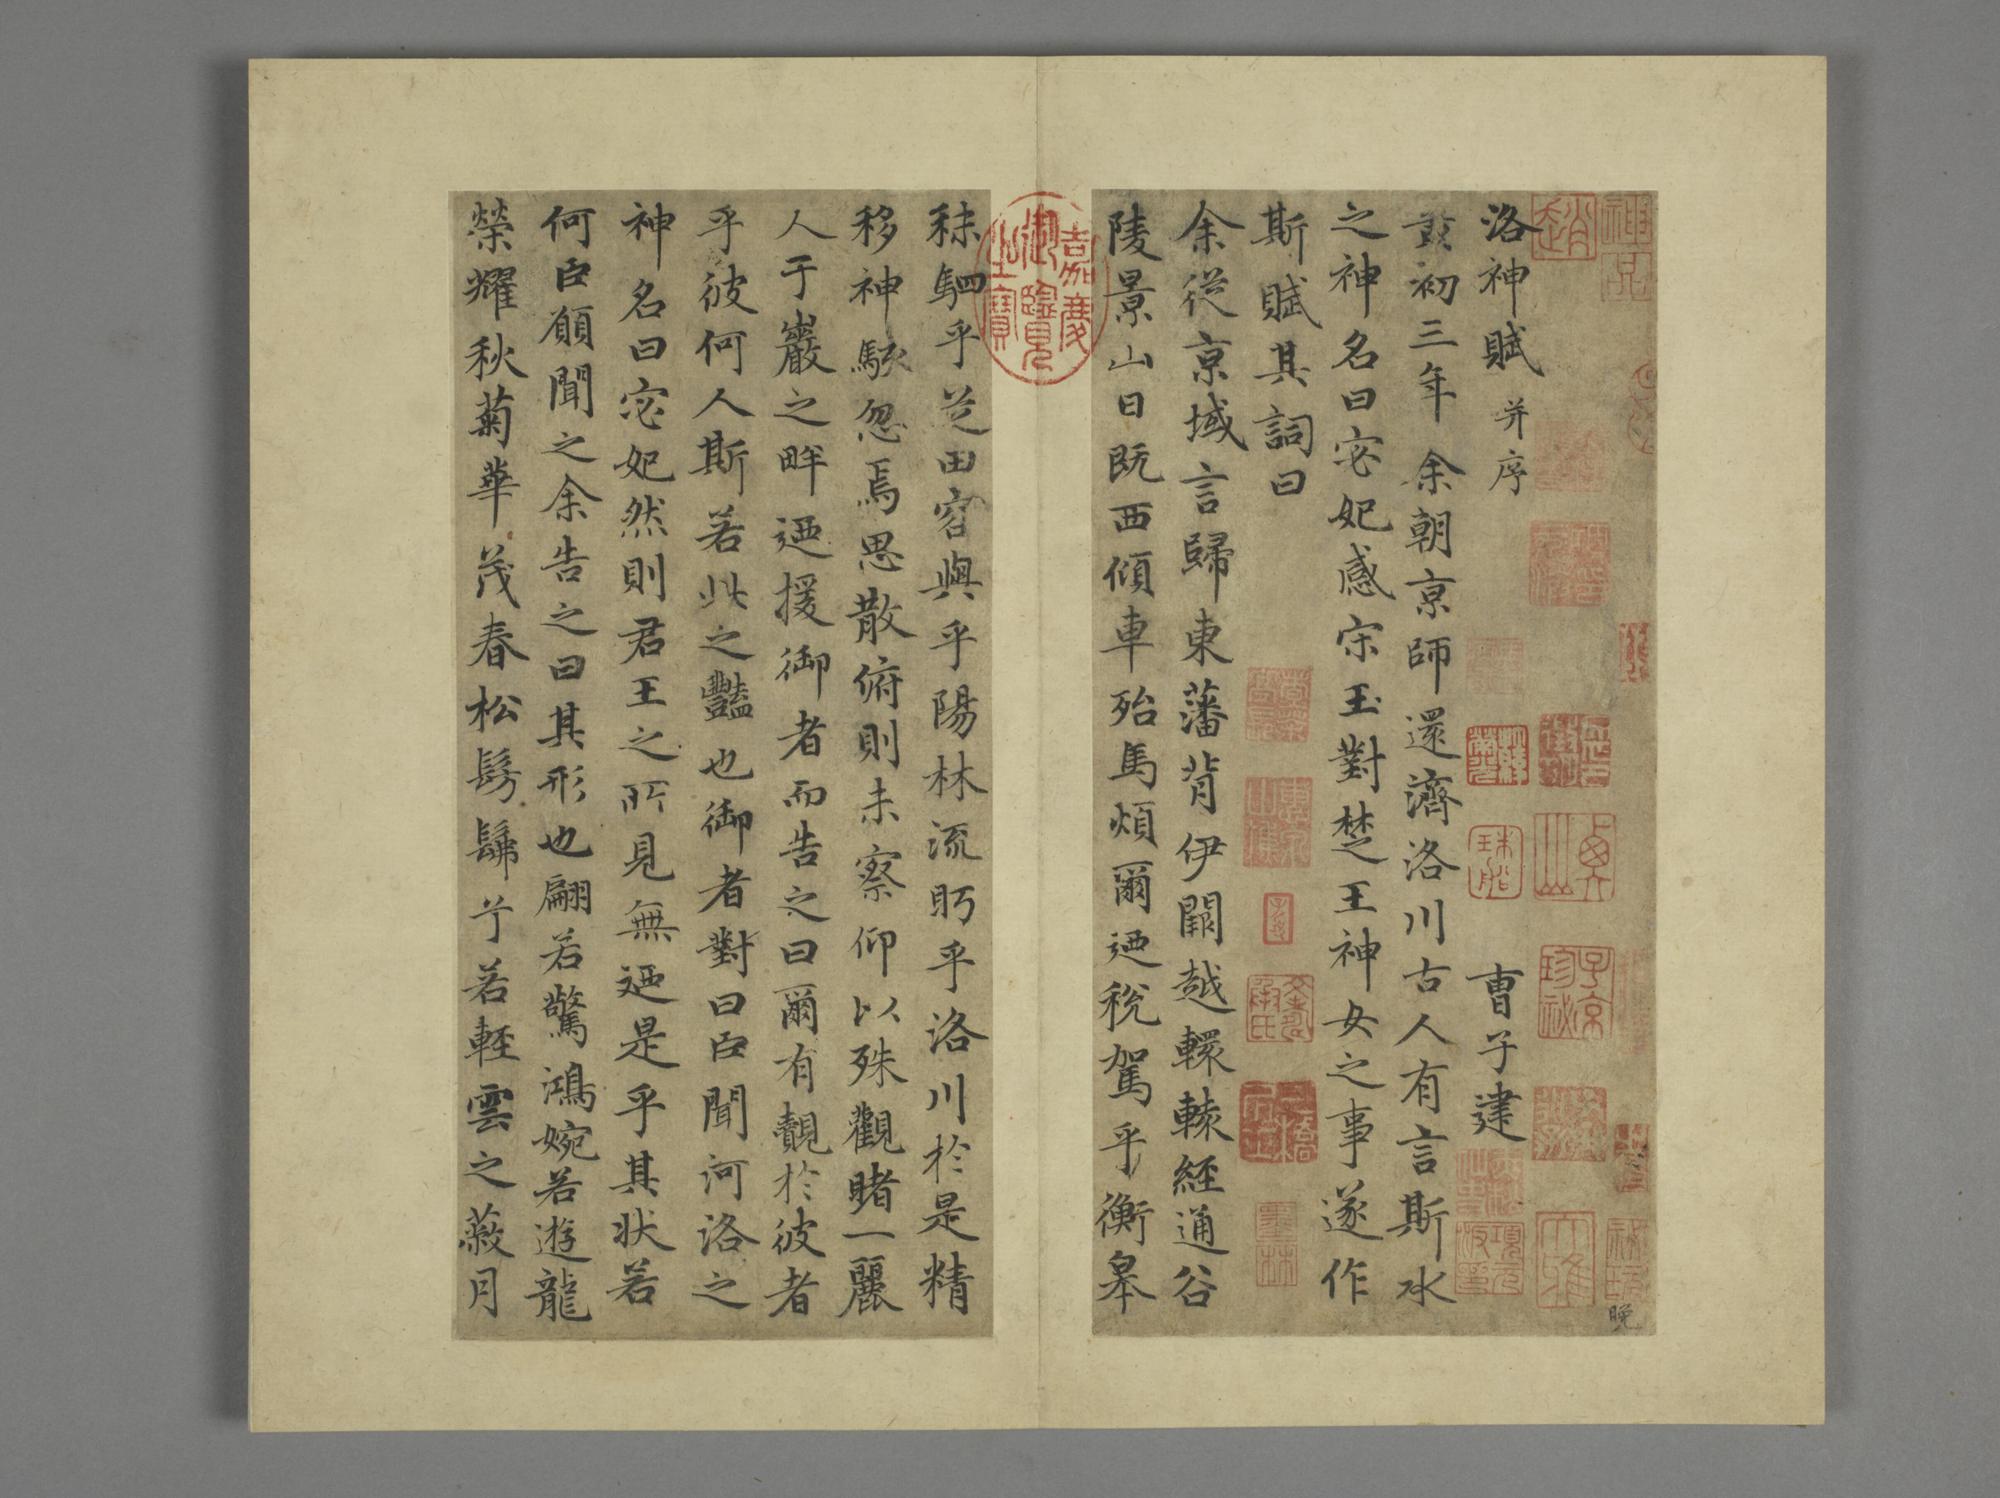 洛神賦 并序 曹子建
黃初三年余朝京師還濟洛川古人有言斯水
之神名曰宓妃感宋玉對楚王神女之事遂作
斯賦其詞曰
余從京域言歸東藩背伊闕越轘轅經通谷
陵景山日既西傾車殆馬煩爾迺稅駕乎衡皋
秣駟乎芝田容與乎陽林流眄乎洛川於是精
移神駭忽焉思散俯則未察仰以殊觀睹一麗
人于巖之畔迺援御者而告之曰爾有覿於彼者
乎彼何人斯若此之豔也御者對曰臣聞河洛之
神名曰宓妃然則君王之所見無迺是乎其狀若
何臣願聞之余告之曰其形也翩若驚鴻婉若遊龍
榮耀秋菊華茂春松髣髴兮若輕雲之蔽月
嘉慶御覽之寶
神品
趙
子京珍祕
墨林
晚